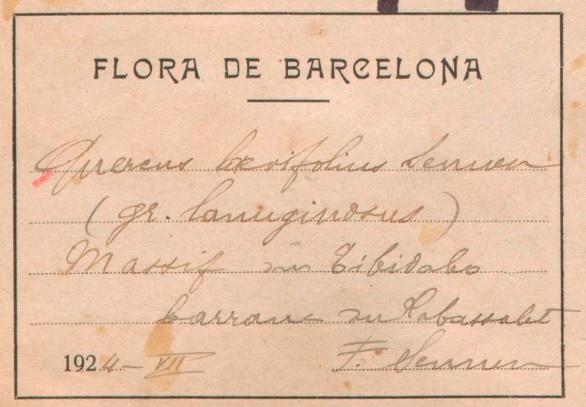 FLORA DE BARCELONA
Quercus lævifolius Sennen
(gr. lanuginosus)
Massif du Tibidabo
barranc du Rabassalet
1924-VII F. Sennen